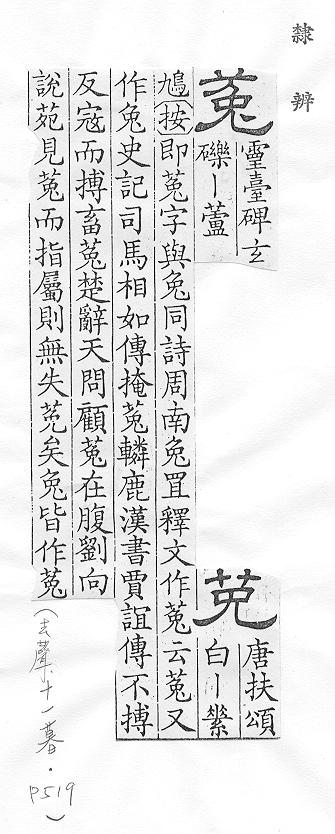 隸辨
菟 靈臺碑玄
礫丨蘆
䒕 唐扶頌
白丨䌓
鳩按即菟字與兔同詩周南兔罝釋文作菟云菟又
作兔史記司馬相如傳掩菟轔鹿漢書賈誼傳不搏
反寇而搏畜菟楚辭天問顧菟在腹劉向
說苑見菟而指屬則無失菟矣兔皆作菟
(去聲十一暮.P519)